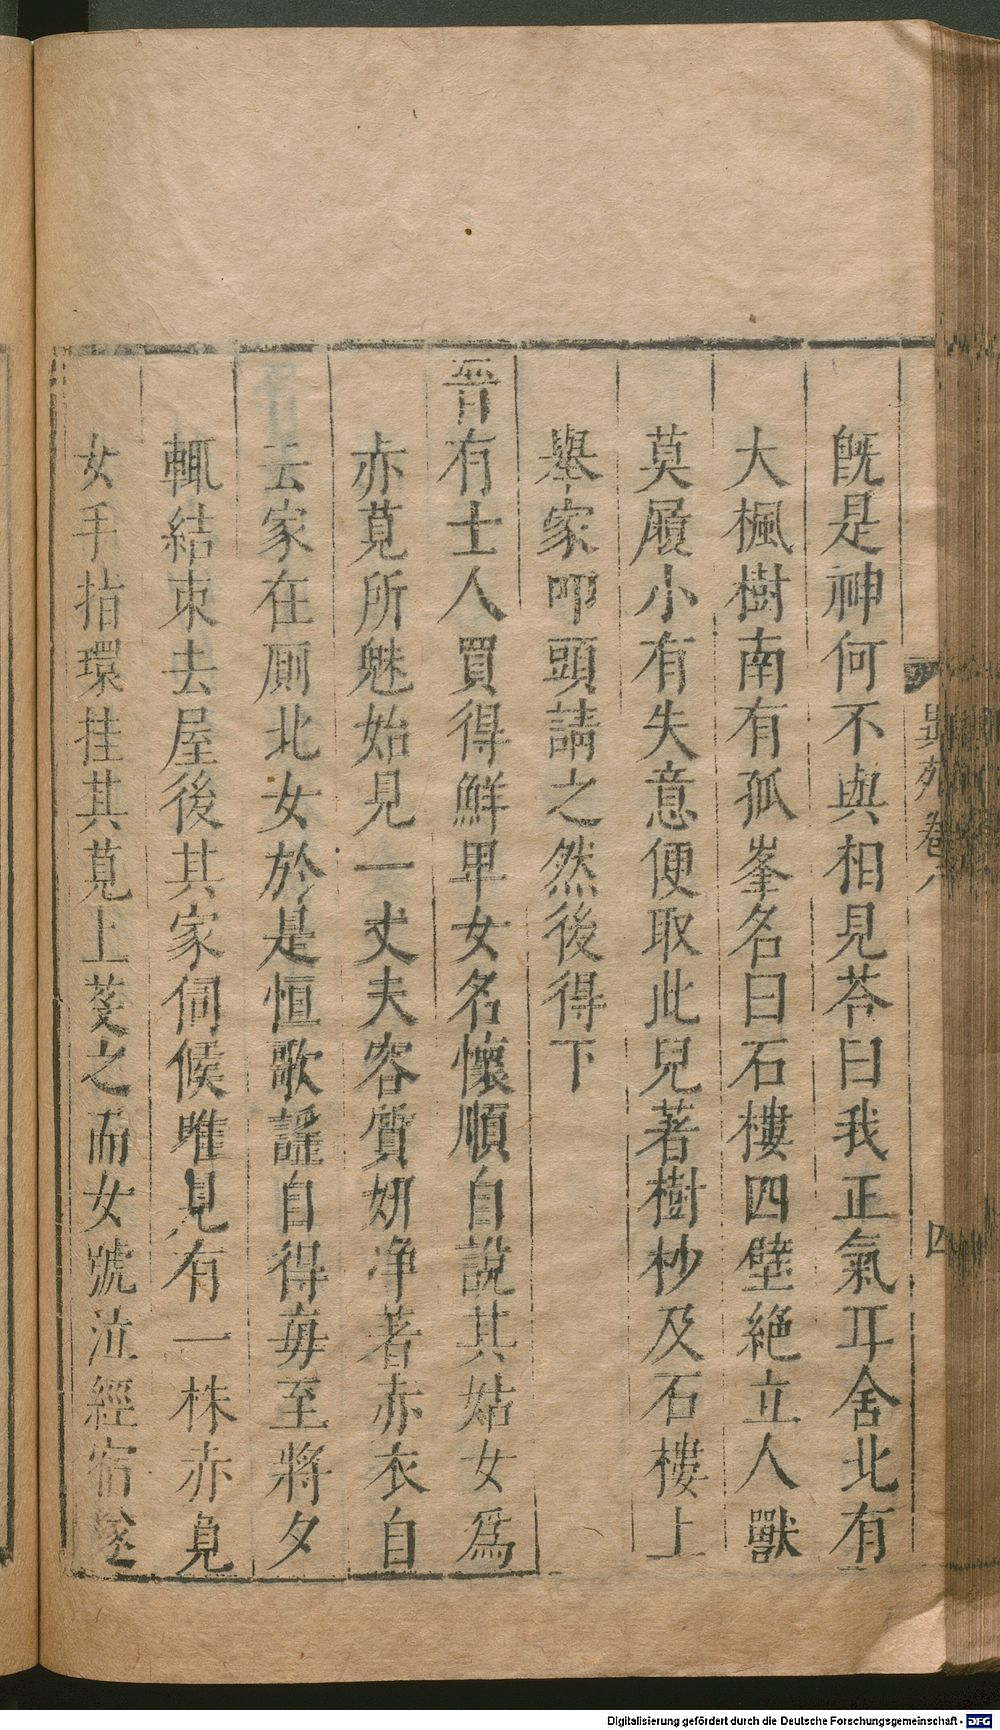 旣是神何不與相見荅曰我正氣耳舍北有
大楓樹南有孤峯名曰石樓四壁絶立人獸
莫履小有失意便取此兒著樹杪及石樓上
舉家叩頭請之然後得下
晉有士人買得鮮卑女名懷順自說其姑女爲
赤莧所魅始見一丈夫容質妍净著赤衣自
云家在厠北女於是恒歌謡自得每至將夕
輒結束去屋後其家伺候唯見有一株赤莧
女手指環挂其莧上芟之而女號泣經宿遂
異苑卷八
四
Digitalisierung gefördert durch die Deutsche Forschungsgemeinschaft - DFG